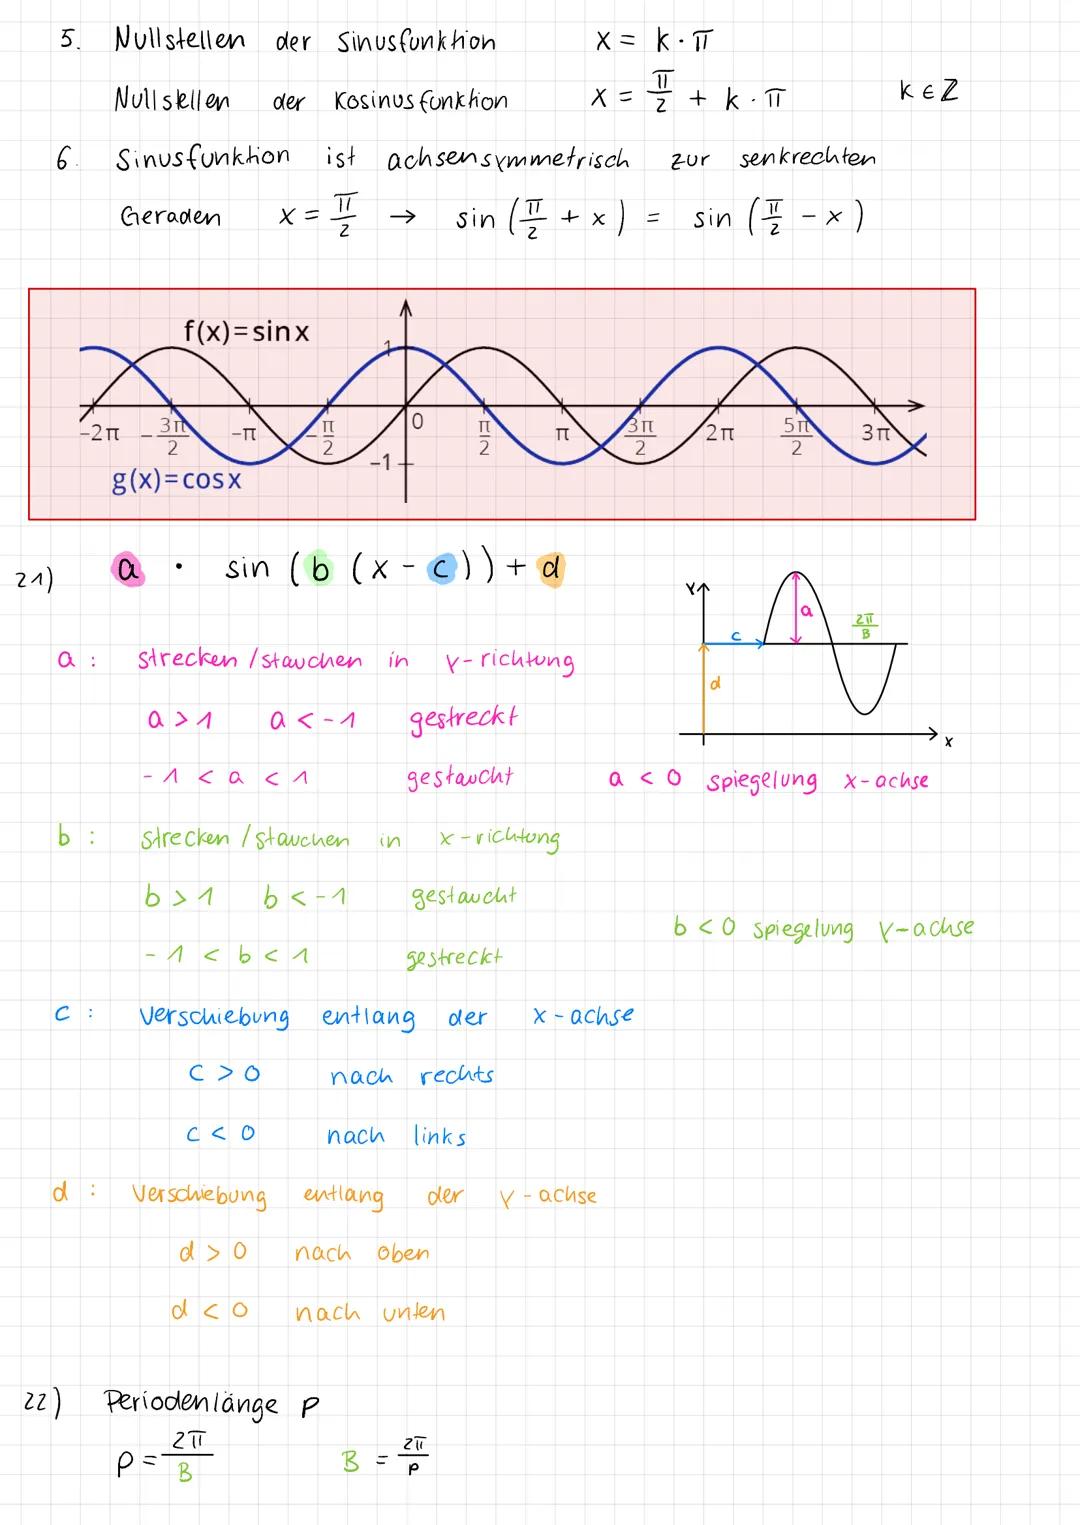 5. Nullstellen der Sinusfunktion x = k · π
Nullstellen der Kosinusfunktion x = π/2 + k · π k ∈ ℤ
6. Sinusfunktion ist achsensymmetrisch zur senkrechten
Geraden x = π/2 → sin (π/2 + x) = sin (π/2 - x)
f(x)=sin x
1
0
-2π -3π/2 -π -π/2 π/2 π 3π/2 2π 5π/2 3π
-1
g(x)=cos x
21) a · sin (b (x - c)) + d
y
a
2π/B
c
d
x
a : strecken / stauchen in y-richtung
a > 1 a < -1 gestreckt
-1 < a < 1 gestaucht a < 0 spiegelung x-achse
b : strecken / stauchen in x-richtung
b > 1 b < -1 gestaucht
b < 0 spiegelung y-achse
-1 < b < 1 gestreckt
c : Verschiebung entlang der x-achse
c > 0 nach rechts
c < 0 nach links
d : Verschiebung entlang der y-achse
d > 0 nach oben
d < 0 nach unten
22) Periodenlänge p
p = 2π/B B = 2π/p